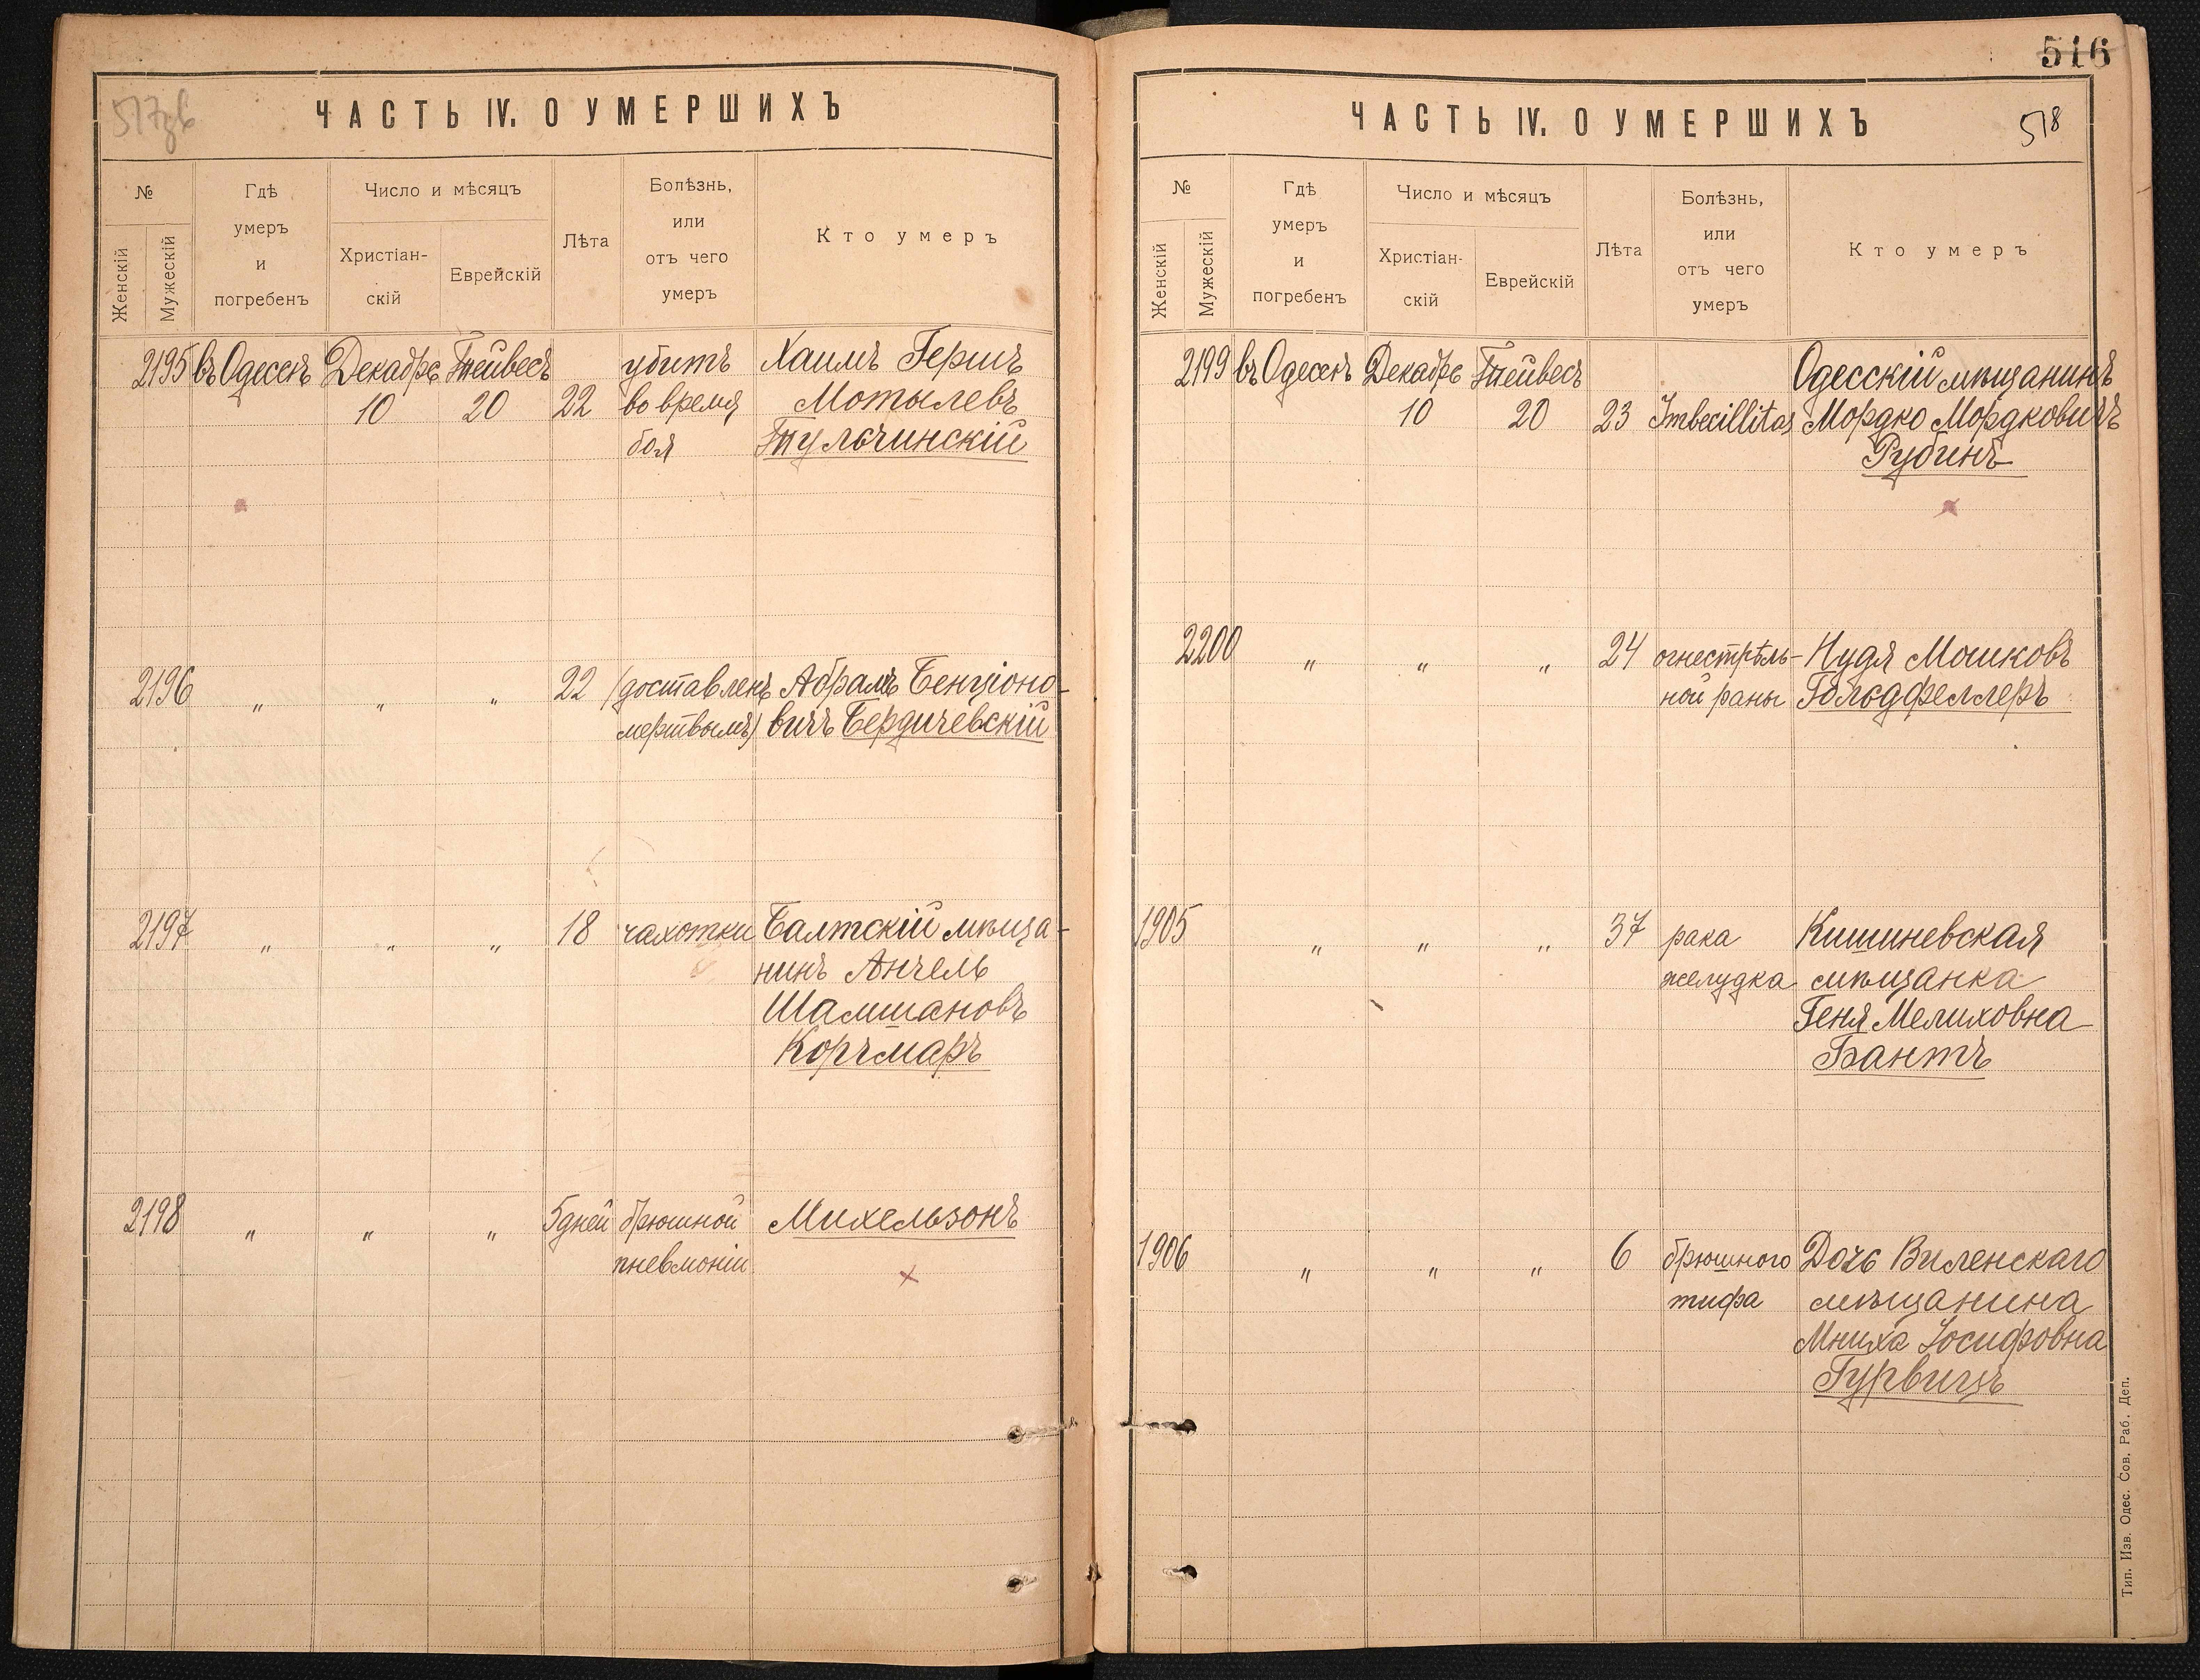 517зв
ЧАСТЬ IV. О УМЕРШИХЪ
№
Женскій
Мужескій
Гдѣ
умеръ
и
погребенъ
Число и мѣсяцъ
Христіан-
скій
Еврейскій
Лѣта
Болѣзнь,
или
отъ чего
умеръ
Кто умеръ
2195 въ Одессѣ Декабрь Тейвесъ убитъ Хаимъ Гершъ
10 20 22 во время Мотылевъ
боя Тульчинскій
2196 " " " 22 (доставленъ Абрамъ Бенціоно-
мертвымъ) вичъ Бердичевскій
2197 " " " 18 чахотки Балтскій мѣща-
нинъ Анчель
Шамшановъ
Корчмаръ
2198 " " " 5 дней брюшной Михельзонъ
пневмоніи
516
ЧАСТЬ IV. О УМЕРШИХЪ
518
№
Женскій
Мужескій
Гдѣ
умеръ
и
погребенъ
Число и мѣсяцъ
Христіан-
скій
Еврейскій
Лѣта
Болѣзнь,
или
отъ чего
умеръ
Кто умеръ
2199 въ Одессѣ Декабрь Тейвесъ Одесскій мѣщанинъ
10 20 23 Imbecillitas Мордко Мордковичъ
Рубинъ
2200 " " " 24 огнестрѣль- Нудя Мошковъ
ной раны Гольдфеллеръ
1905 " " " 37 рака Кишиневская
желудка мѣщанка
Геня Мелиховна
Бантъ
1906 " " " 6 брюшного Дочь Виленскаго
тифа мѣщанина
Мниха Іосифовна
Гурвицъ
Тип. Изв. Одес. Сов. Раб. Деп.